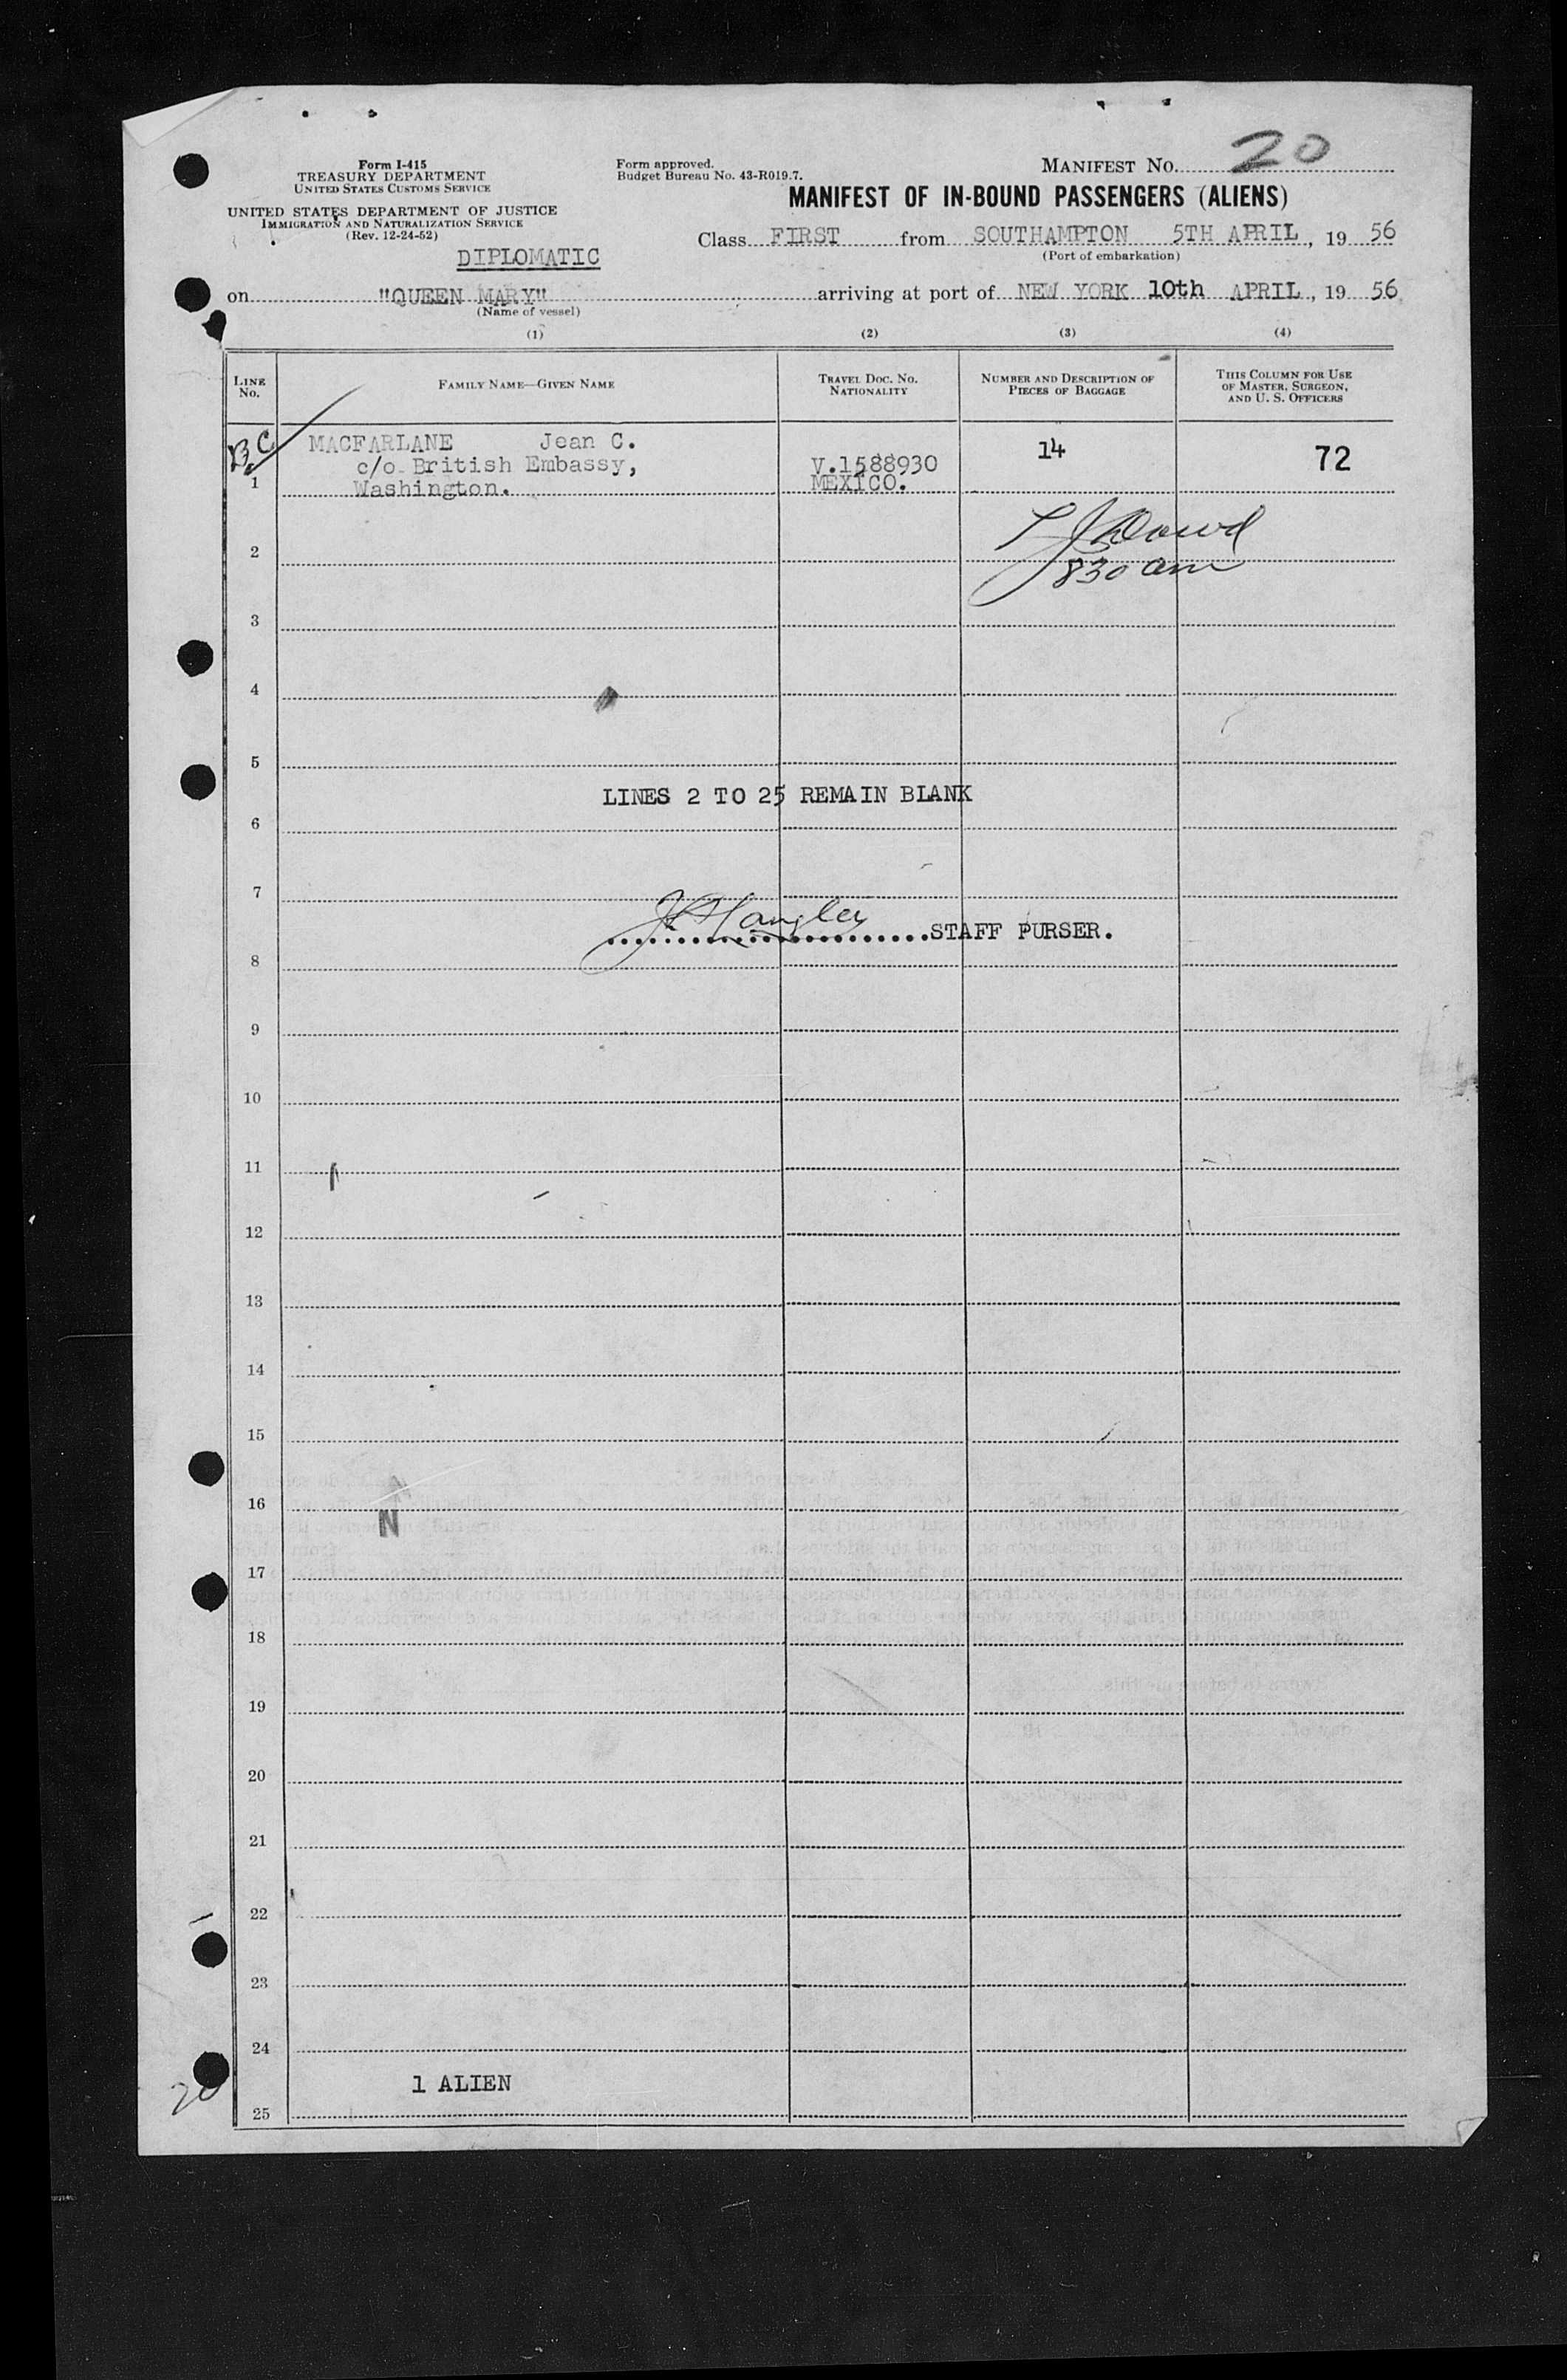 Form I-415
TREASURY DEPARTMENT
UNITED STATES CUSTOMS SERVICE
UNITED STATES DEPARTMENT OF JUSTICE
IMMIGRATION AND NATURALIZATION SERVICE
(Rev. 12-24-52)
DIPLOMATIC
Form approved.
Budget Bureau No. 43-R019.7.
MANIFEST NO. 20
MANIFEST OF IN-BOUND PASSENGERS (ALIENS)
Class FIRST from SOUTHAMPTON 5TH APRIL, 19 56
(Port of embarkation)
on "QUEEN MARY" arriving at port of NEW YORK 10th APRIL, 19 56
(Name of vessel)
(1) (2) (3) (4)
LINE NO. FAMILY NAME—GIVEN NAME TRAVEL DOC. NO. NATIONALITY NUMBER AND DESCRIPTION OF PIECES OF BAGGAGE THIS COLUMN FOR USE OF MASTER, SURGEON, AND U. S. OFFICERS
MACFARLANE Jean C. 14 72
c/o British Embassy, V.1588930
1 Washington. MEXICO.
2
830 am
3
4
5
LINES 2 TO 25 REMAIN BLANK
6
7
Langley STAFF PURSER.
8
9
10
11
12
13
14
15
16
N
17
18
19
20
21
22
23
24
1 ALIEN
20
25